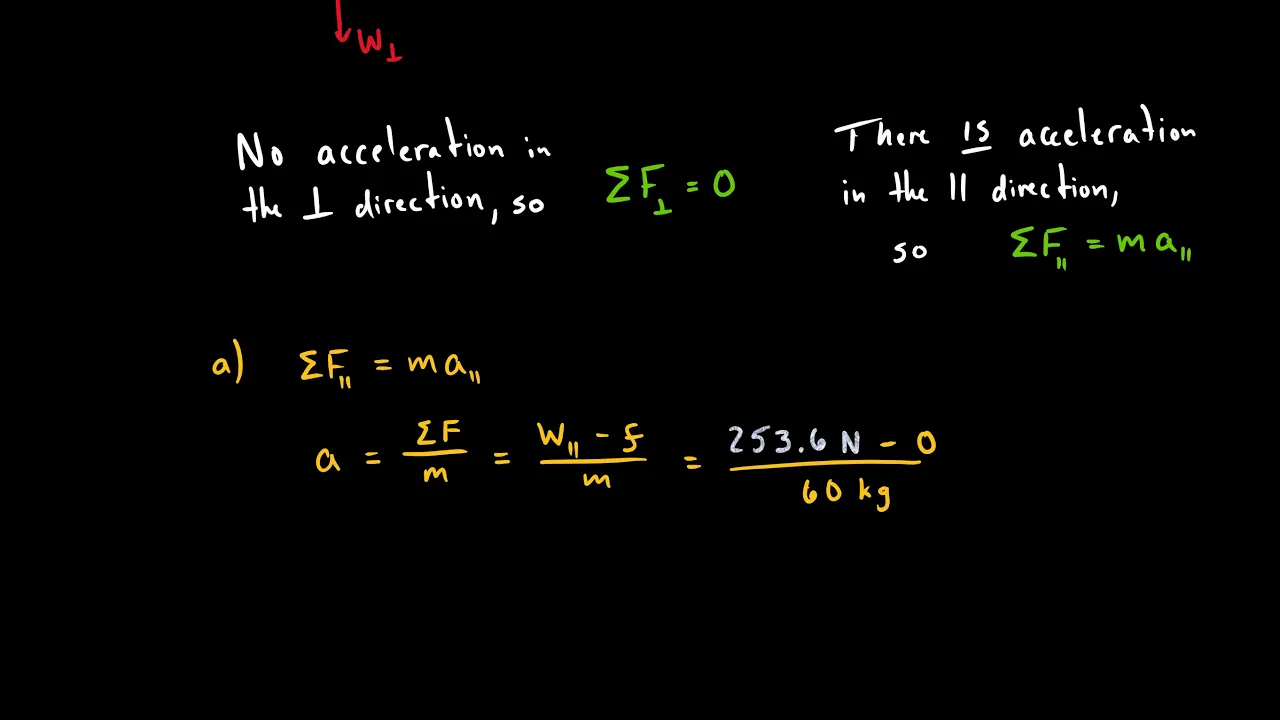 W⊥
No acceleration in
the ⊥ direction, so ΣF⊥ = 0
There is acceleration
in the || direction,
so ΣF|| = m a||
a) ΣF|| = m a||
a = ΣF/m = (W|| - f)/m = (253.6 N - 0)/(60 kg)